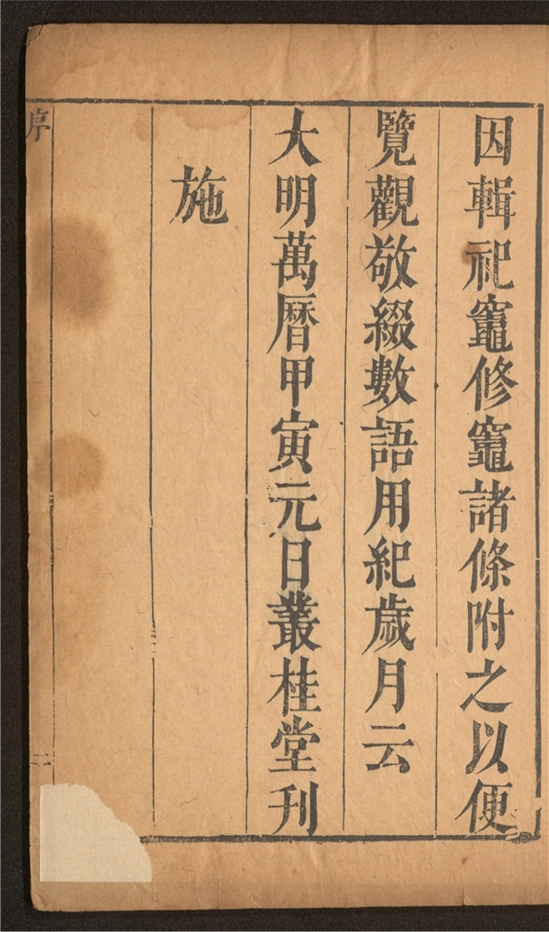 因輯祀竈修竈諸條附之以便
覽觀敬綴數語用紀歲月云
大明萬曆甲寅元日叢桂堂刊
施
序
二